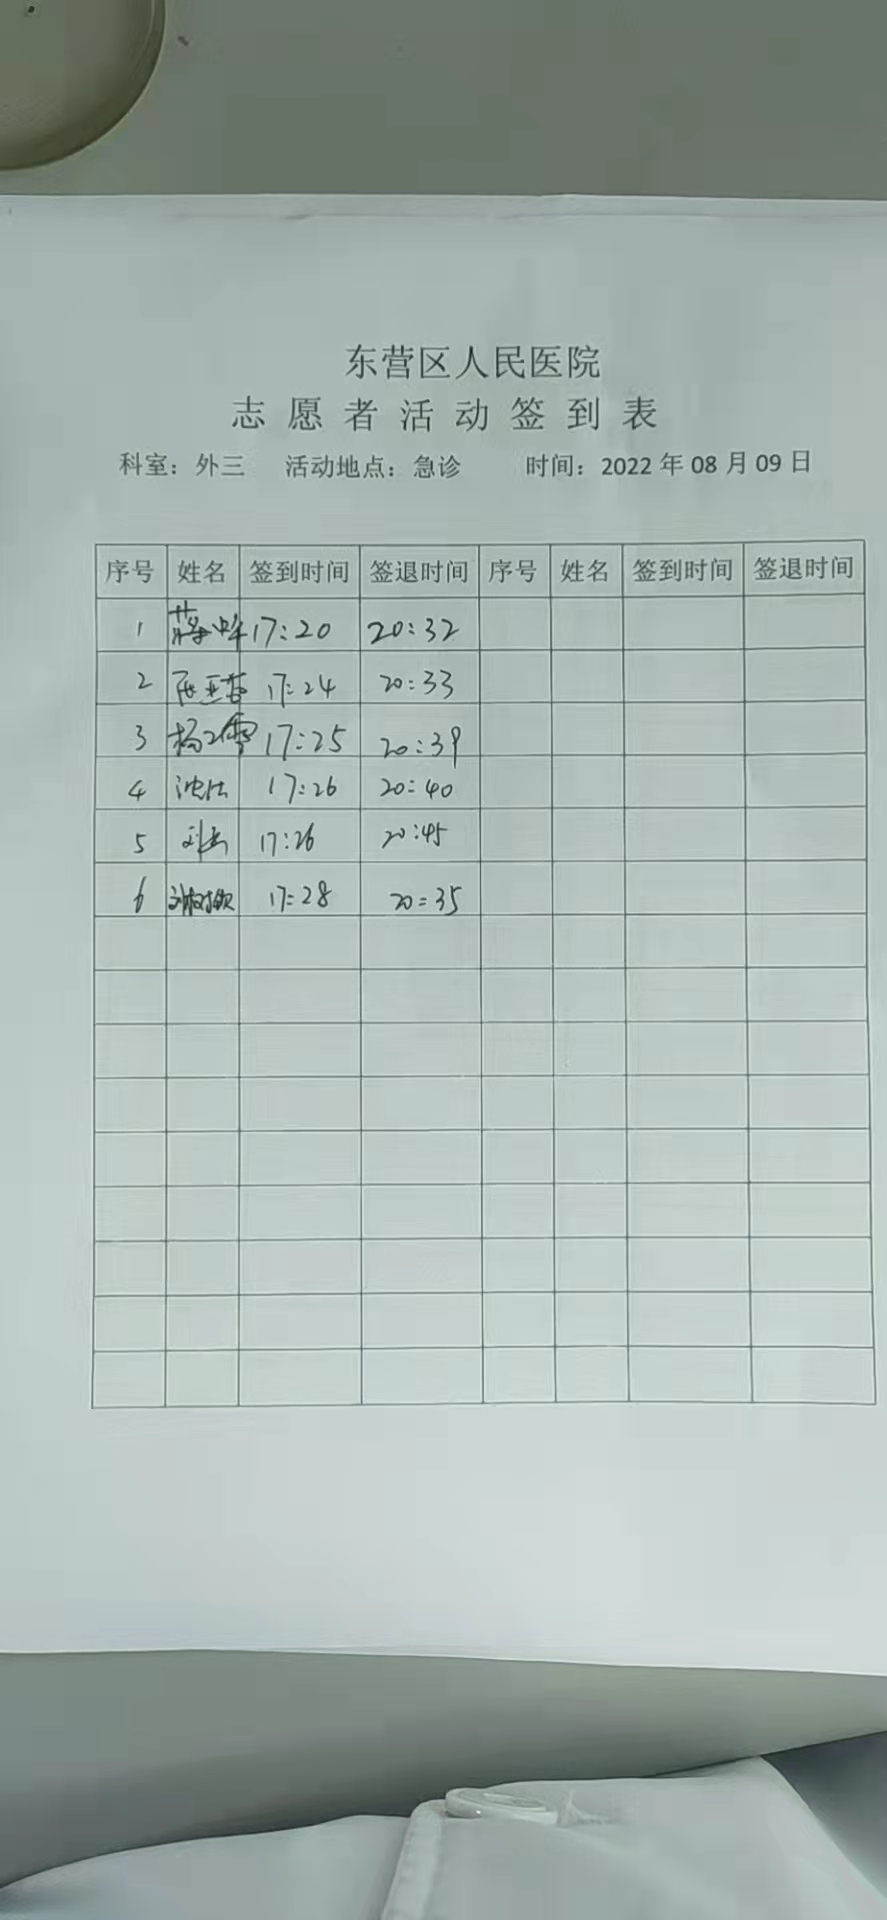 东营区人民医院
志愿者活动签到表
科室：外三 活动地点：急诊 时间：2022年08月09日
序号 姓名 签到时间 签退时间 序号 姓名 签到时间 签退时间
1 17:20 20:32
2 17:24 20:33
3 17:25 20:39
4 17:26 20:40
5 17:26 20:45
6 17:28 20:35